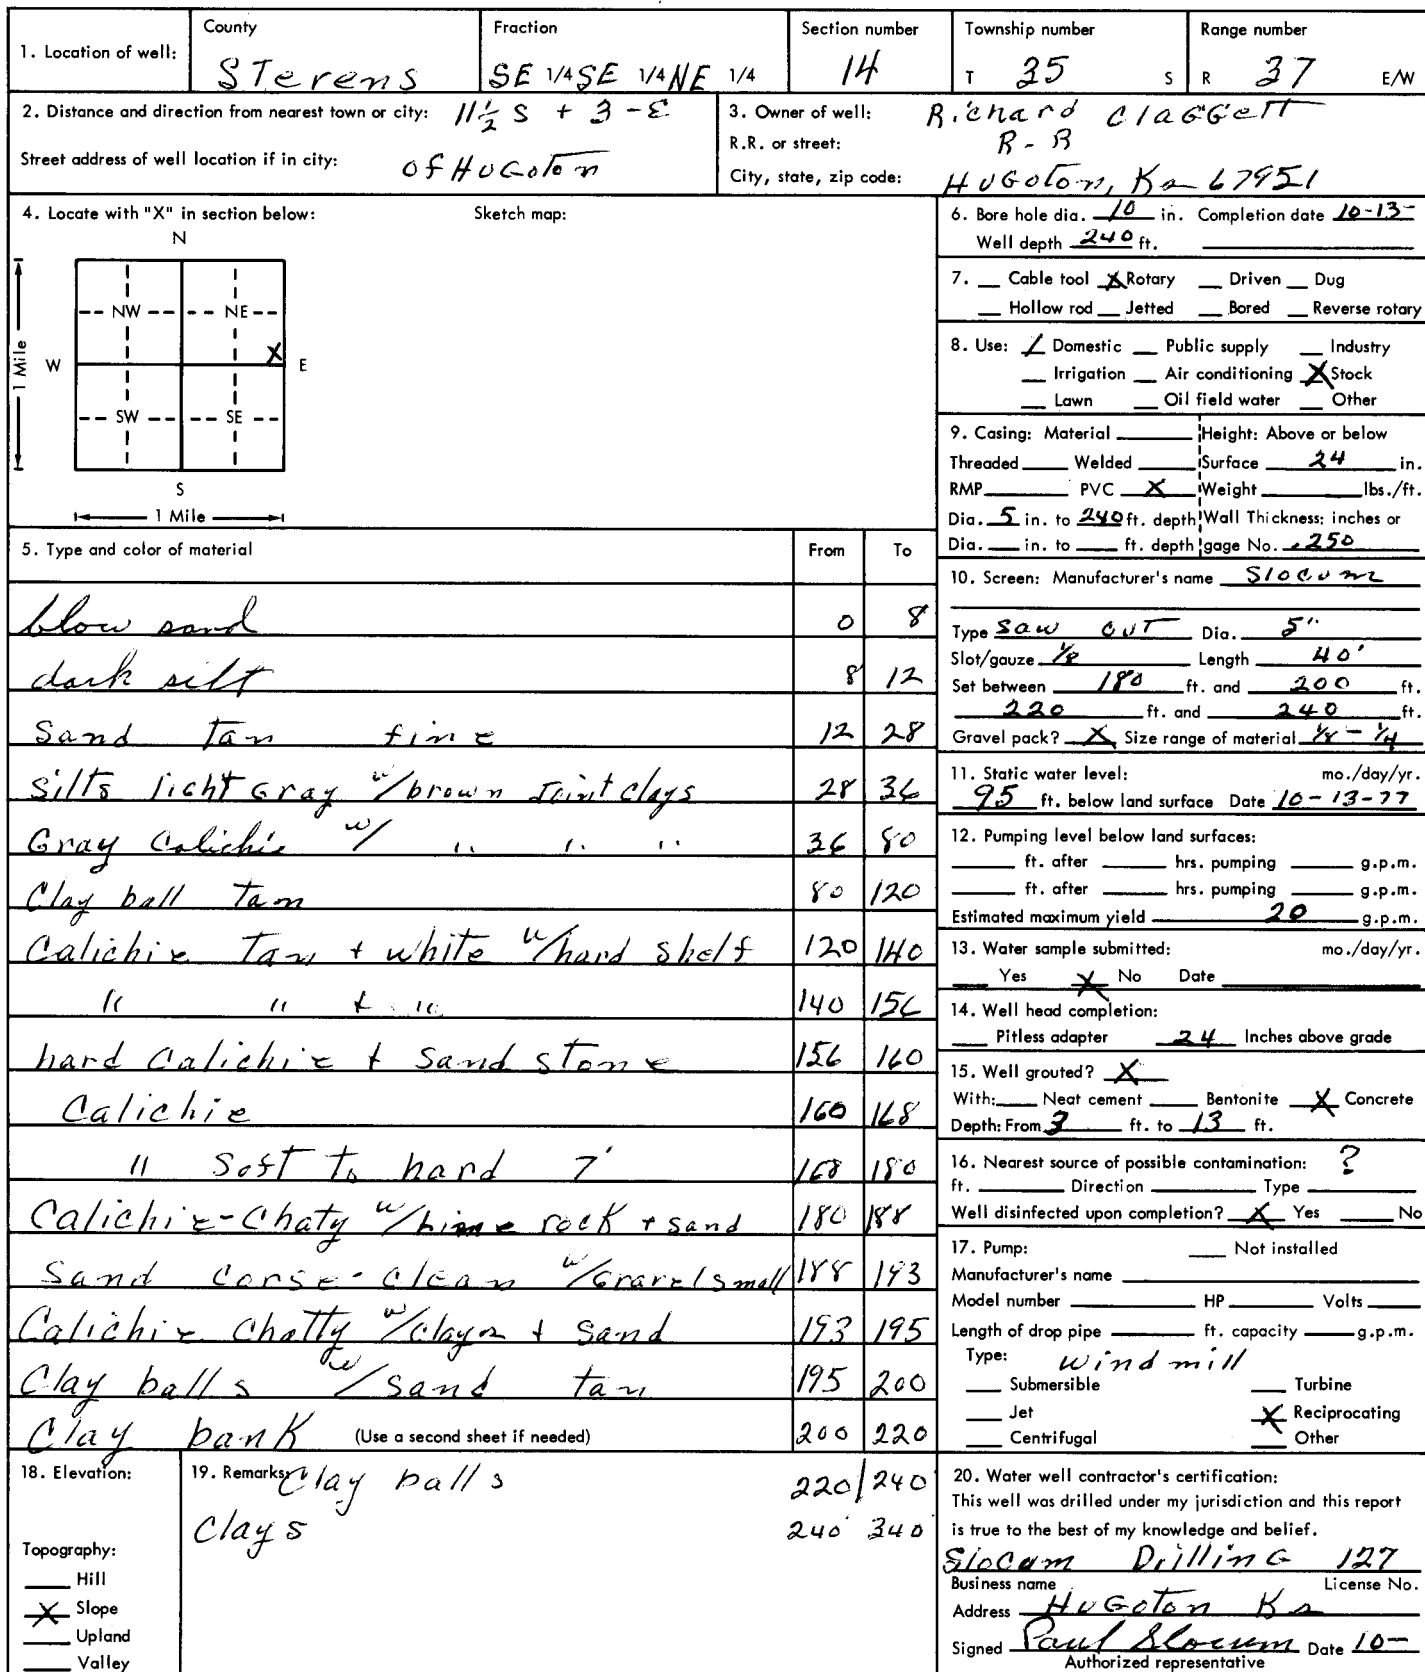 1. Location of well: County Stevens Fraction SE 1/4 SE 1/4 NE 1/4 Section number 14 Township number T 35 S Range number R 37 E/W
2. Distance and direction from nearest town or city: 11½ S + 3 - E
Street address of well location if in city: of HUGoton
3. Owner of well: Richard ClaGGett
R.R. or street: R-R
City, state, zip code: HUGoton, Ks 67951
4. Locate with "X" in section below: Sketch map:
N
NW NE
W X E
1 Mile
SW SE
S
1 Mile
5. Type and color of material From To
blow sand 0 8
dark silt 8 12
Sand Tan fine 12 28
Silts licht Gray w/brown Joint clays 28 36
Gray Calichie w/ " " " 36 80
Clay ball Tan 80 120
Calichie Tan + white w/hard shelf 120 140
" " + " 140 156
hard Calichie + Sand stone 156 160
Calichie 160 168
" Soft To hard 7' 168 180
Calichie-Chaty w/lime rock + sand 180 188
Sand Corse-Clean w/Gravel small 188 193
Calichie Chatty w/clays + Sand 193 195
Clay balls w/sand tan 195 200
Clay bank (Use a second sheet if needed) 200 220
6. Bore hole dia. 10 in. Completion date 10-13-
Well depth 240 ft.
7. Cable tool X Rotary Driven Dug
Hollow rod Jetted Bored Reverse rotary
8. Use: / Domestic Public supply Industry
Irrigation Air conditioning X Stock
Lawn Oil field water Other
9. Casing: Material Height: Above or below
Threaded Welded Surface 24 in.
RMP PVC X Weight lbs./ft.
Dia. 5 in. to 240 ft. depth Wall Thickness: inches or
Dia. in. to ft. depth gage No. .250
10. Screen: Manufacturer's name Slocum
Type Saw CUT Dia. 5"
Slot/gauze 1/8 Length 40'
Set between 180 ft. and 200 ft.
220 ft. and 240 ft.
Gravel pack? X Size range of material 1/8 - 1/4
11. Static water level: mo./day/yr.
95 ft. below land surface Date 10-13-77
12. Pumping level below land surfaces:
ft. after hrs. pumping g.p.m.
ft. after hrs. pumping g.p.m.
Estimated maximum yield 20 g.p.m.
13. Water sample submitted: mo./day/yr.
Yes X No Date
14. Well head completion:
Pitless adapter 24 Inches above grade
15. Well grouted? X
With: Neat cement Bentonite X Concrete
Depth: From 3 ft. to 13 ft.
16. Nearest source of possible contamination: ?
ft. Direction Type
Well disinfected upon completion? X Yes No
17. Pump: Not installed
Manufacturer's name
Model number HP Volts
Length of drop pipe ft. capacity g.p.m.
Type: windmill
Submersible Turbine
Jet X Reciprocating
Centrifugal Other
18. Elevation:
Topography:
Hill
X Slope
Upland
Valley
19. Remarks: Clay balls 220/240
Clays 240 340
20. Water well contractor's certification:
This well was drilled under my jurisdiction and this report
is true to the best of my knowledge and belief.
Slocum DrillinG 127
Business name License No.
Address HUGoton Ks
Signed Paul Slocum Date 10-
Authorized representative